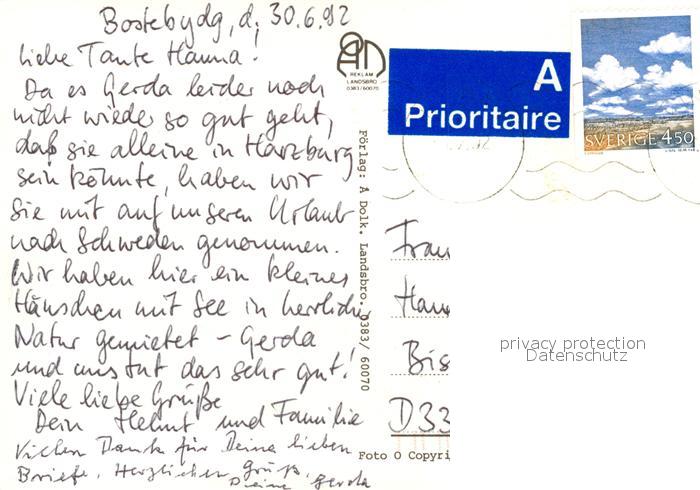 Bostebydg, d. 30.6.92
Liebe Tante Hanna!
Da es Gerda leider noch
nicht wieder so gut geht,
daß sie alleine in Harzburg
sein könnte, haben wir
sie mit auf unseren Urlaub
nach Schweden genommen.
Wir haben hier ein kleines
Häuschen mit See in herrlicher
Natur gemietet – Gerda
und uns tut das sehr gut!
Viele liebe Grüße
Dein Helmut und Familie
Vielen Dank für Deine lieben
Briefe. Herzlichen Gruß,
Deine Gerda
REKLAM
LANDSBRO
0383/60070
Förlag: Å Dolk. Landsbro. 0383/ 60070
Foto O Copyri
A
Prioritaire
SVERIGE 450
Frau
Han
Bis
D33
privacy protection
Datenschutz